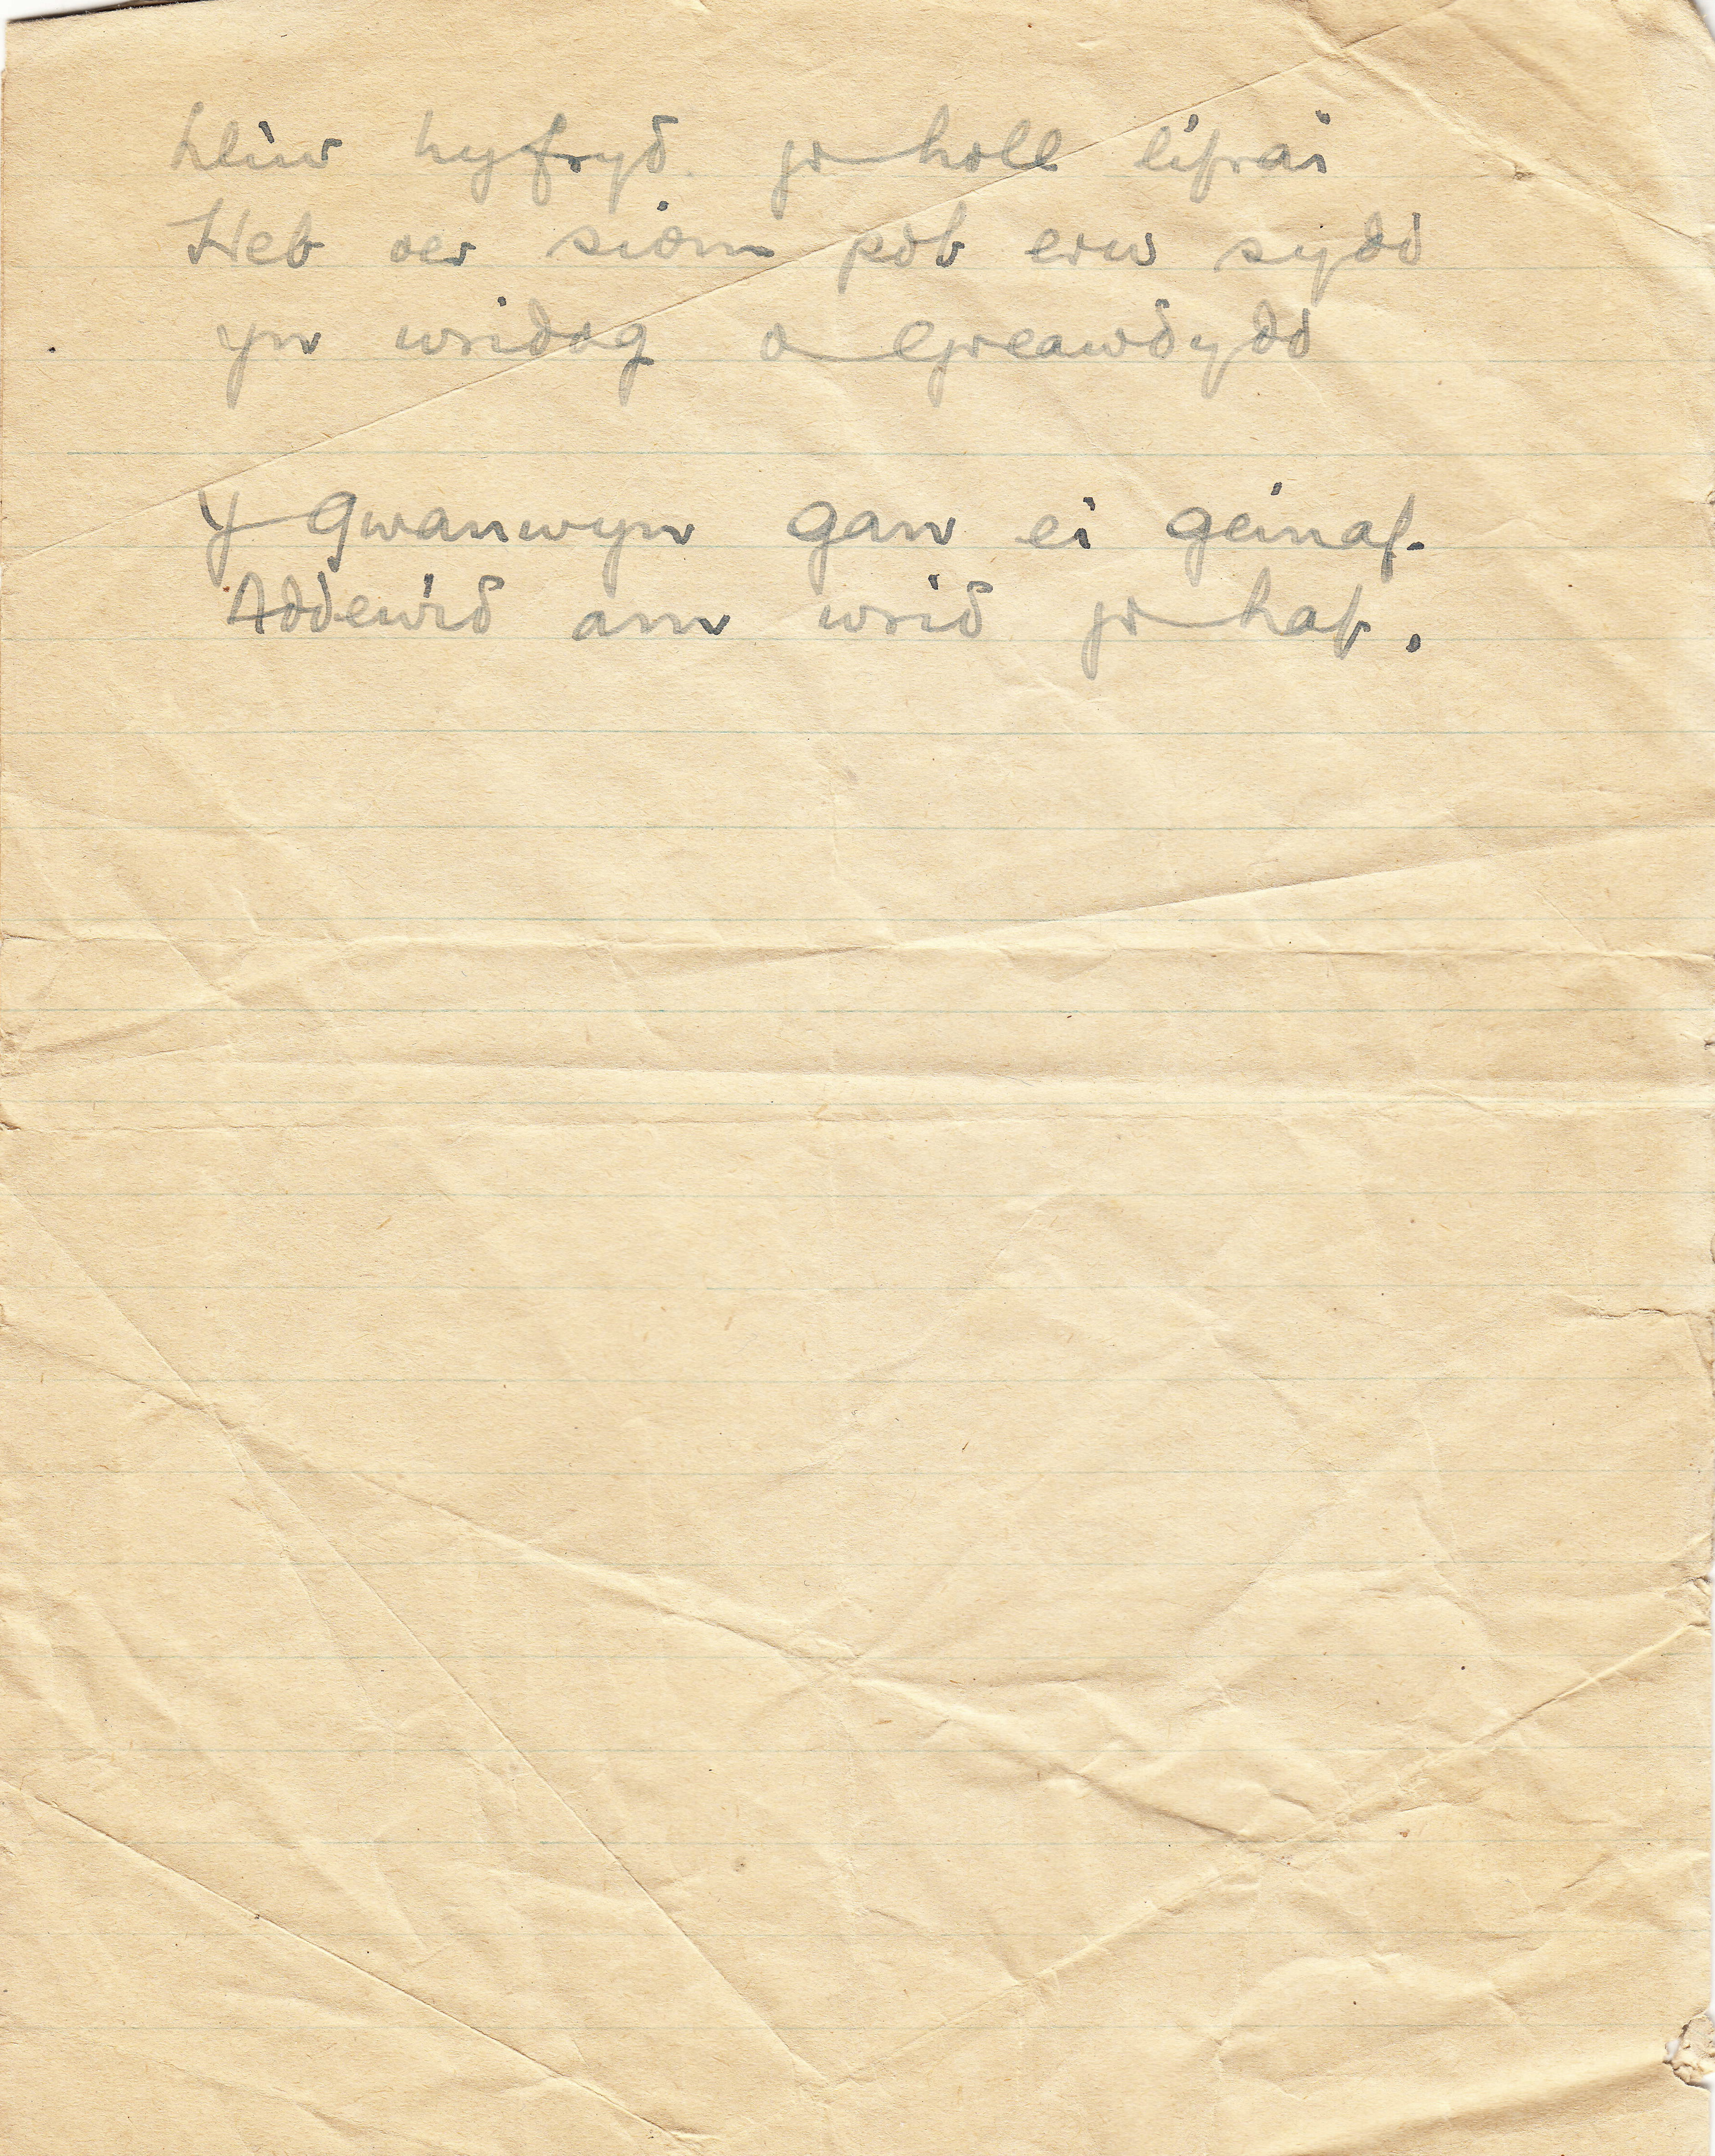 Lliw hyfryd yr holl lifrai
Heb oer siom pob erw sydd
yn wridog o
Y Gwanwyn gan ei geinaf.
Addewid am wrid yr haf.